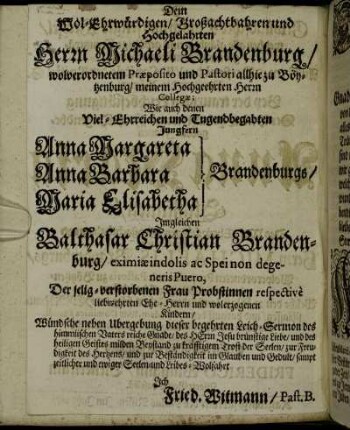 Dem
Wol-Ehrwürdigen/ Großachtbahren und
Hochgelahrten
Herrn Michaeli Brandenburg/
wolverordnetem Præposito und Pastori allhie zu Böy-
tzenburg/ meinem Hochgeehrten Herrn
Collegæ:
Wie auch denen
Viel-Ehrreichen und Tugendbegabten
Jungfern
Anna Margareta
Anna Barbara
Maria Elisabetha
Brandenburgs/
Imgleichen
Balthasar Christian Branden-
burg/ eximiæ indolis ac Spei non dege-
neris Puero,
Der selig-verstorbenen Frau Probstinnen respectivè
liebwehrten Ehe-Herrn und wolerzogenen
Kindern/
Wündsche neben Ubergebung dieser begehrten Leich-Sermon des
himmlischen Vaters reiche Gnade/ des HErrn Jesu brünstige Liebe/ und des
heiligen Geistes milden Beystand zu kräfftigem Trost der Seelen/ zur Freu-
digkeit des Hertzens/ und zur Beständigkeit im Glauben und Gedult/ sampt
zeitlicher und ewiger Seelen und Leibes-Wolfahrt
Ich
Fried. Witmann/ Past. B.